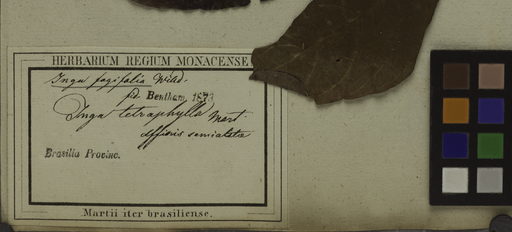 HERBARIUM REGIUM MONACENSE
Inga fagifolia Willd.
fid. Bentham. 1873
Inga tetraphylla Mart.
affinis semialata
Brasilia Provinc.
Martii iter brasiliense.